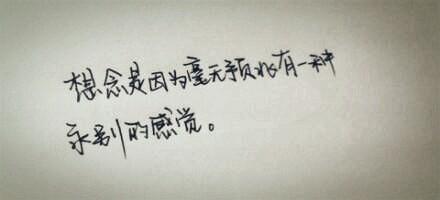 想念是因为毫无预兆有一种
永别的感觉。